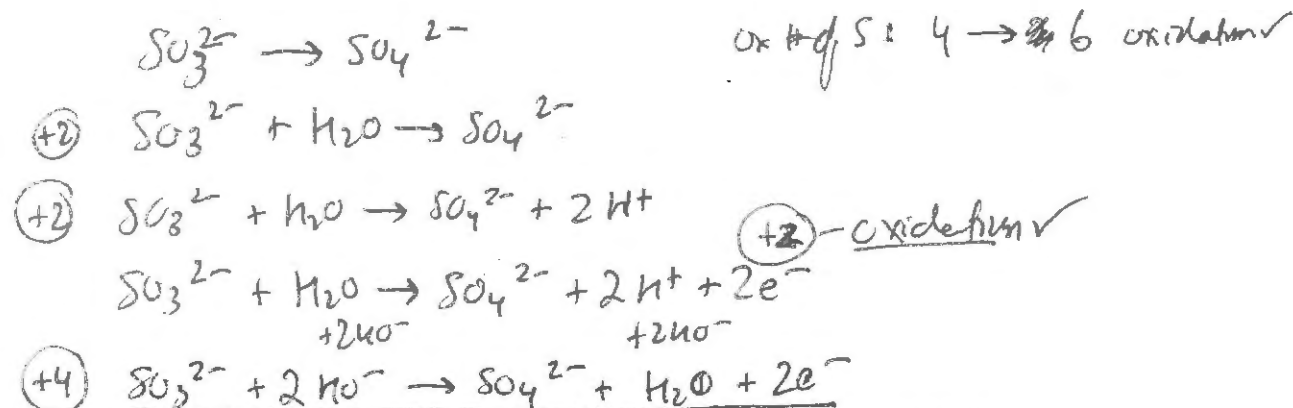 SO₃²⁻ → SO₄²⁻ ox # of S: 4 → 6 oxidation ✓
(+2) SO₃²⁻ + H₂O → SO₄²⁻
(+2) SO₃²⁻ + H₂O → SO₄²⁻ + 2H⁺
(+2) - oxidation ✓
SO₃²⁻ + H₂O → SO₄²⁻ + 2H⁺ + 2e⁻
+2HO⁻ +2HO⁻
(+4) SO₃²⁻ + 2HO⁻ → SO₄²⁻ + H₂O + 2e⁻